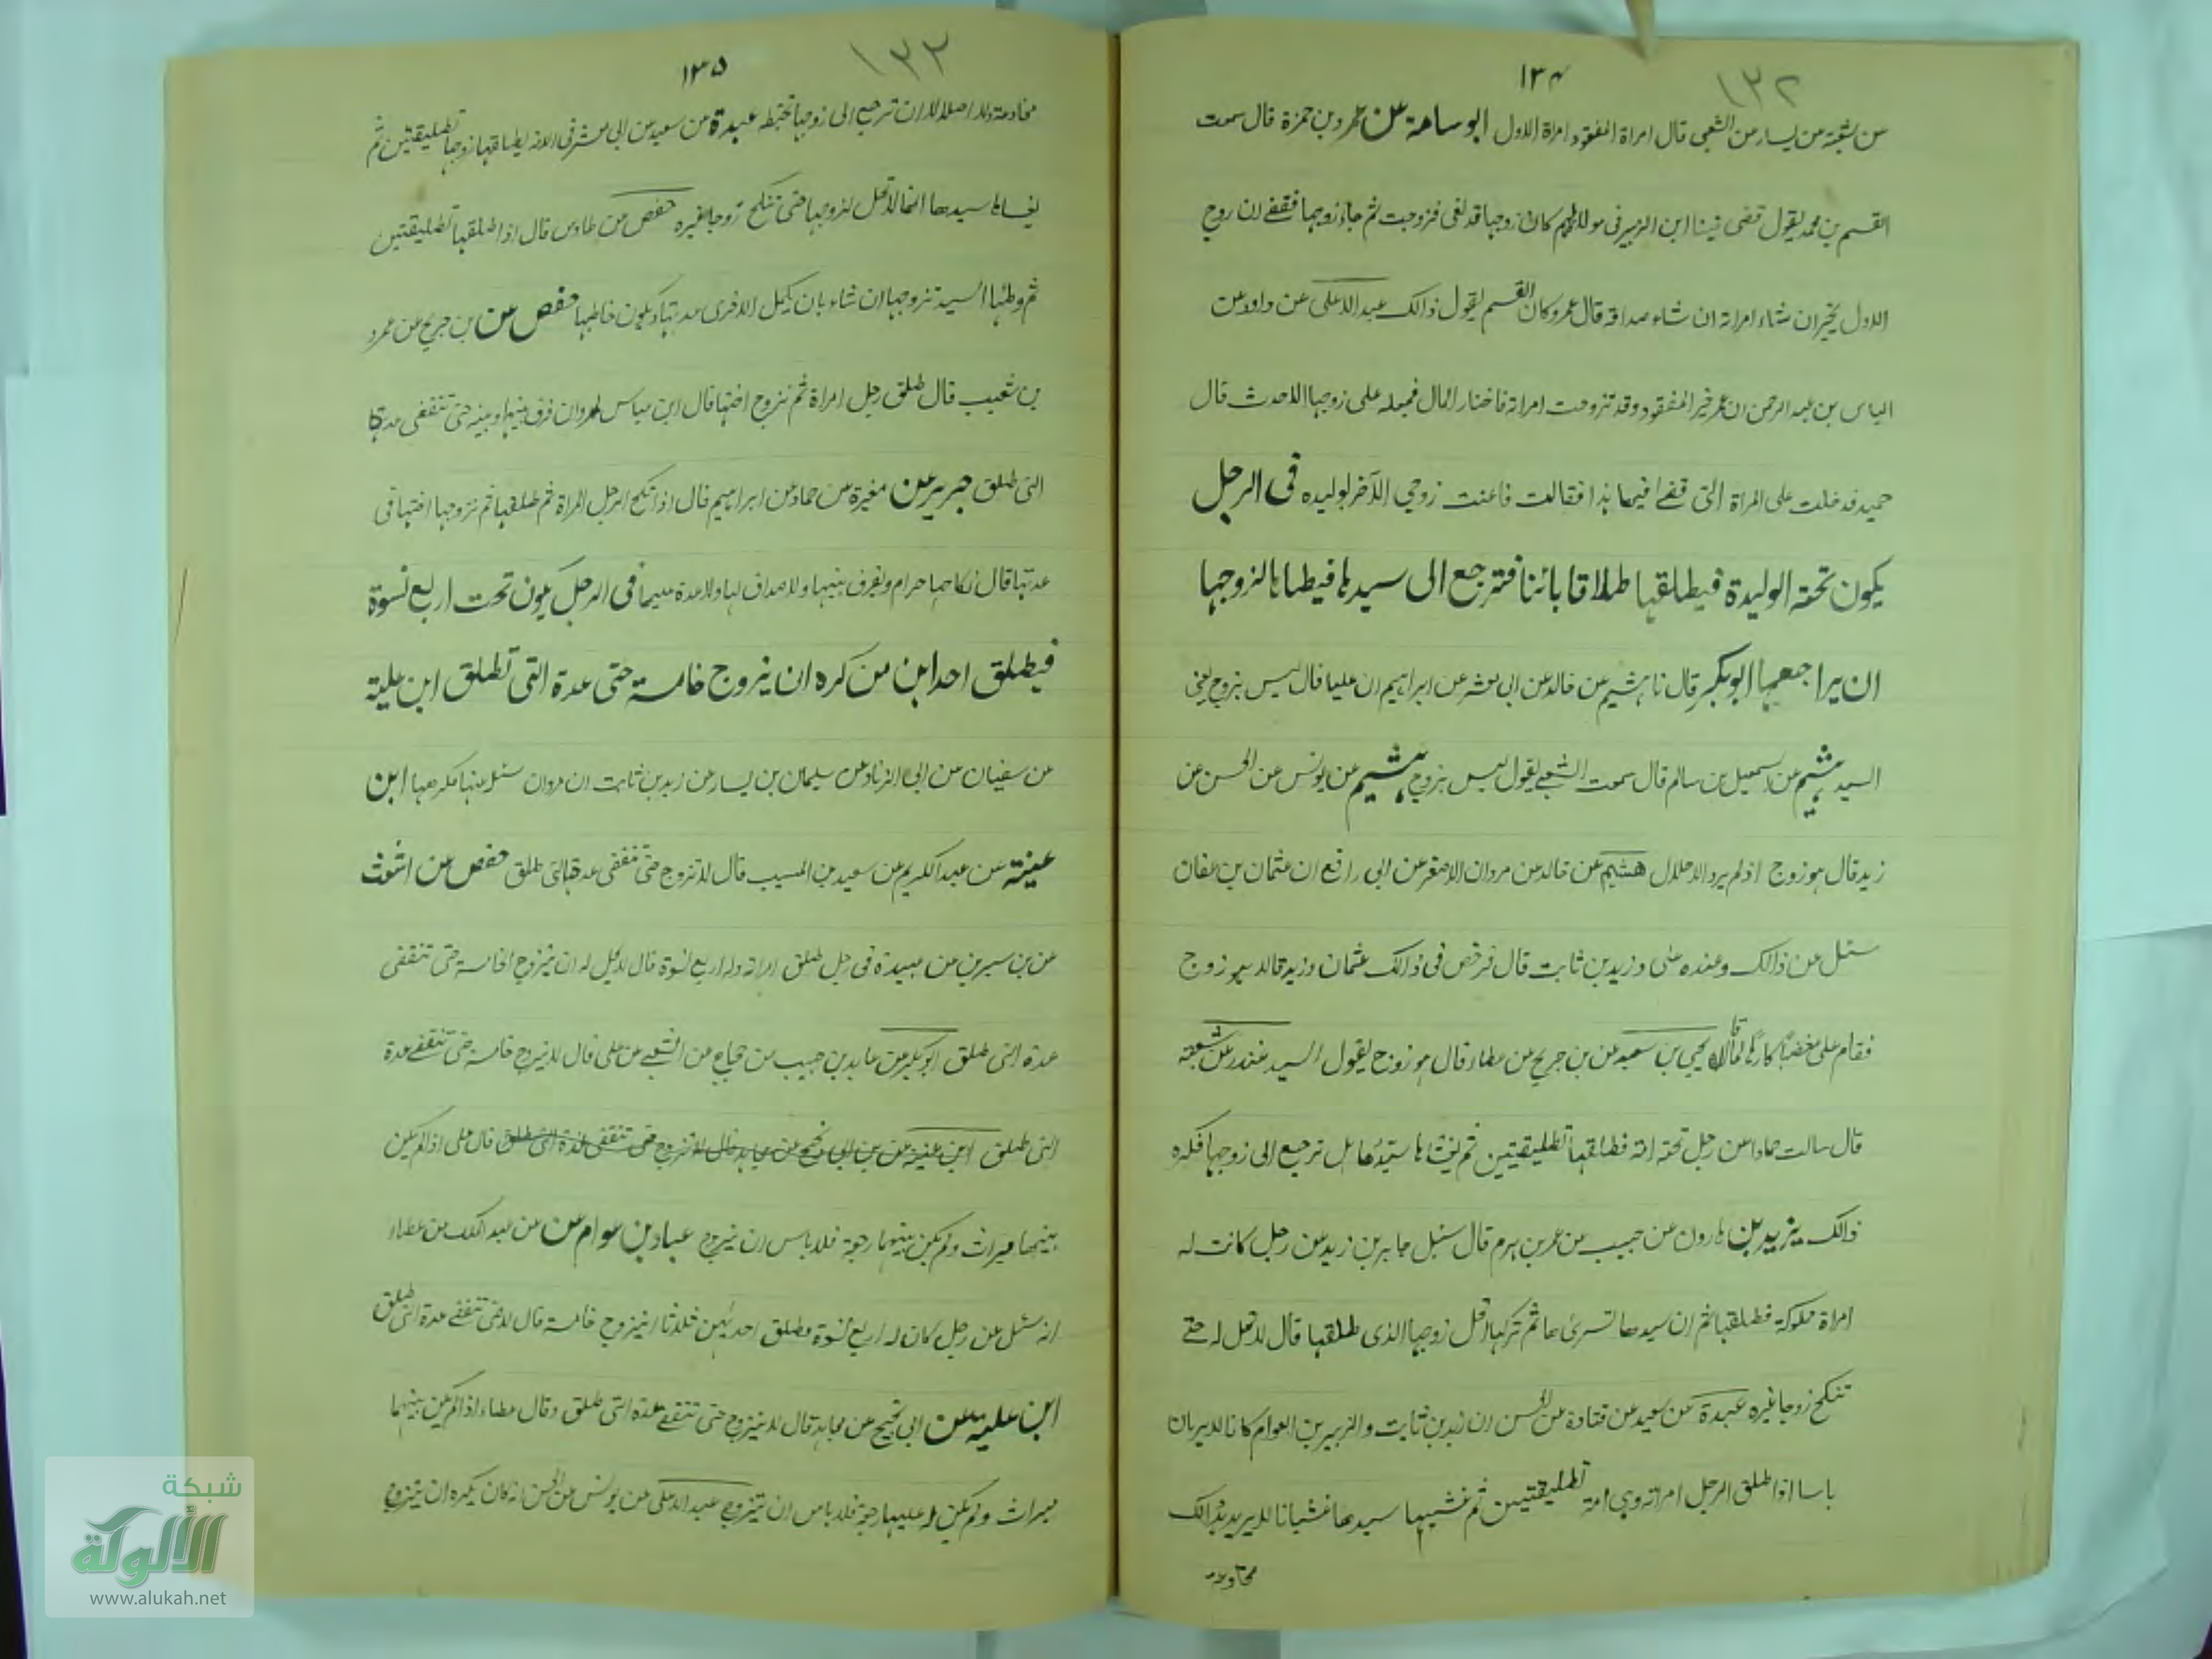 ١٣٤ ١٣٢
عن شعبة عن يسار عن الشعبي قال امراة المفقود امراة الاول ابو سامة عن عمرو بن حمزة قال سمعت
القسم بن محمد يقول قضى فينا ابن الزبير في مولاة لهم كان زوجها قد نعى فزوجت ثم جاء زوجها فقضے ان زوج
الاول يخير ان شاء امراته ان شاء صداقه قال عمرو وكان القسم يقول ذالك عبد الاعلى عن داود عن
الياس بن عبد الرحمن ان عمر خير المفقود وقد تزوجت امراته فاختار المال فجعله على زوجها الاحدث قال
حميد فدخلت على المراة التى قضے فيها هذا فقالت فاعنت زوجي الآخر بوليده فى الرجل
يكون تحته الوليدة فيطلقها طلاقا بائنا فترجع الى سيدها فيطاها لزوجها
ان يراجعها ابو بكر قال نا هشيم عن خالد عن ابى معشر عن ابراهيم ان عليا قال ليس بزوج يعنى
السيد هشيم عن اسمعيل بن سالم قال سمعت الشعبے يقول ليس بزوج هشيم عن يونس عن الحسن عن
زيد قال هو زوج اذ لم يرد الاحلال هشيم عن خالد عن مروان الاصغر عن ابى رافع ان عثمان بن عفان
سئل عن ذالك وعنده على وزيد بن ثابت قال فرخص فى ذالك عثمان وزيد قالا هو زوج
فقام على مغضبا كارها لما قالاه يحيى بن سعيد عن بن جريج عن عطاء قال هو زوج يقول السيد غندر عن شعبة
قال سالت حمادا عن رجل تحته امة فطلقها تطليقتين ثم يغشاها سيدها هل ترجع الى زوجها فكره
ذالك يزيد بن هارون عن حبيب عن عمر بن هرم قال سئل جابر بن زيد عن رجل كانت له
امراة مملوكة فطلقها ثم ان سيدها تسرى ها ثم تركها اتحل زوجها الذى طلقها قال لا تحل له حتے
تنكح زوجا غيره عبدة عن سعيد عن قتادة عن الحسن ان زيد بن ثابت والزبير بن العوام كانا لا يريان
باسا اذا طلق الرجل امراته وهى امة تطليقتين ثم غشيها سيدها غشيانا لا يريد بذالك
مخادعة
١٣٥ ١٣٣
مخادعة ولا احلالا ان ترجع الى زوجها بخطبة عبدة عن سعيد عن ابى معشر فى الامة يطلقها زوجها تطليقتين ثم
يغشاها سيدها انها لا تحل لزوجها حتى تنكح زوجا غيره حفص عن طاوس قال اذا طلقها تطليقتين
ثم وطئها السيد تزوجها ان شاء بان تكمل الاخرى عدتها ويكون خاطبها حفص عن بن جريج عن عمرو
بن شعيب قال طلق رجل امراة ثم تزوج اختها قال ابن عباس لمروان فرق بينها وبينه حتى تنقضى عدتها
التى طلق جرير عن مغيرة عن حماد عن ابراهيم قال اذا نكح الرجل المراة ثم طلقها ثم تزوجها اختها فى
عدتها قال نكاحها حرام ويفرق بينهما ولا صداق لها ولا عدة عليها فى الرجل يكون تحت اربع نسوة
فيطلق احداهن من كره ان يزوج خامسة حتى عدة التى تطلق ابن علية
عن سفيان عن ابى الزناد عن سليمان بن يسار عن زيد بن ثابت ان مروان سئل عنها فكرهها ابن
عينة عن عبد الكريم عن سعيد بن المسيب قال لا تزوج حتى تنقضى عدة التى طلق حفص عن اشعث
عن بن سيرين عن عبيدة فى رجل طلق امراته وله اربع نسوة قال لا يحل له ان يتزوج الخامسة حتى تنقضى
عدة التى طلق ابو بكر عن عايد بن حبيب عن حجاج عن الشعبے عن على قال لا يتزوج خامسة حتى تنقضے عدة
التى طلق ابن عينة عن بن ابى نجيح عن مجاهد قال لا تزوج حتى تنقضى عدة التى طلق قال على اذا لم يكن
بينهما ميراث ولم يكن بينهما رجعة فلا باس ان يتزوج عباد بن عوام عن عن عبد الملك عن عطاء
انه سئل عن رجل كان له اربع نسوة وطلق احداهن ثلاثا ايتزوج خامسة قال لا حتى تنقضے عدة التى طلق
ابن علية عن ابى نجيح عن مجاهد قال لا يتزوج حتى تنقضے عدة التى طلق وقال عطاء اذا لم يكن بينهما
ميراث ولم يكن له عليها رجعة فلا باس ان يتزوج عبد الاعلى عن يونس عن الحسن انه كان يكره ان يتزوج
شبكة
الألوكة
www.alukah.net